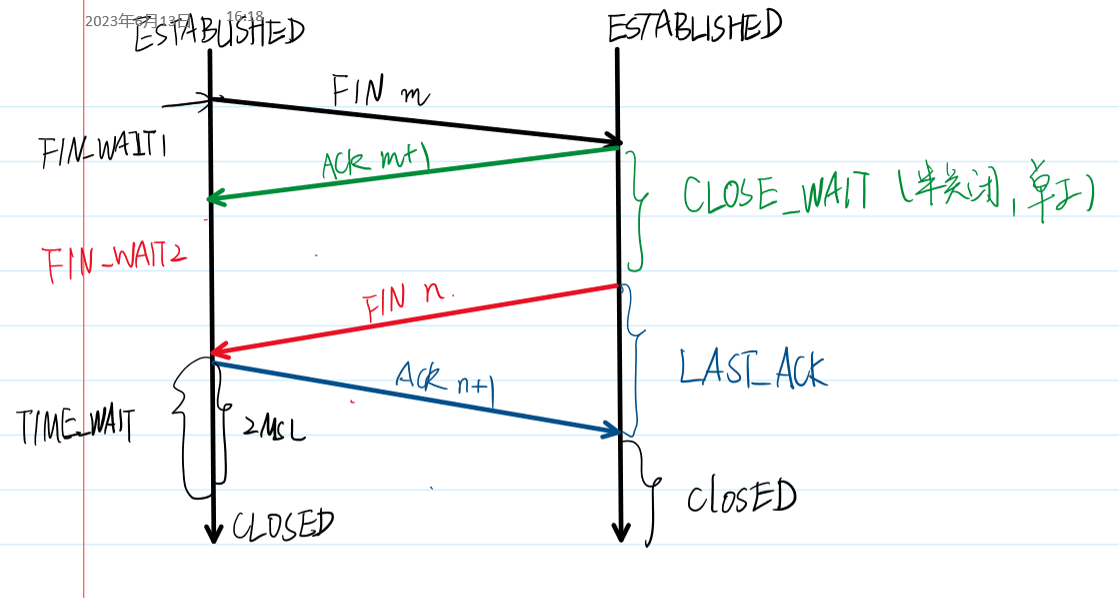 2023年6月13日 16:18
ESTABLISHED
ESTABLISHED
FIN m
FIN_WAIT1
ACK m+1
CLOSE_WAIT (半关闭,单工)
FIN_WAIT2
FIN n.
LAST_ACK
ACK n+1
TIME_WAIT
2MSL
CLOSED
CLOSED